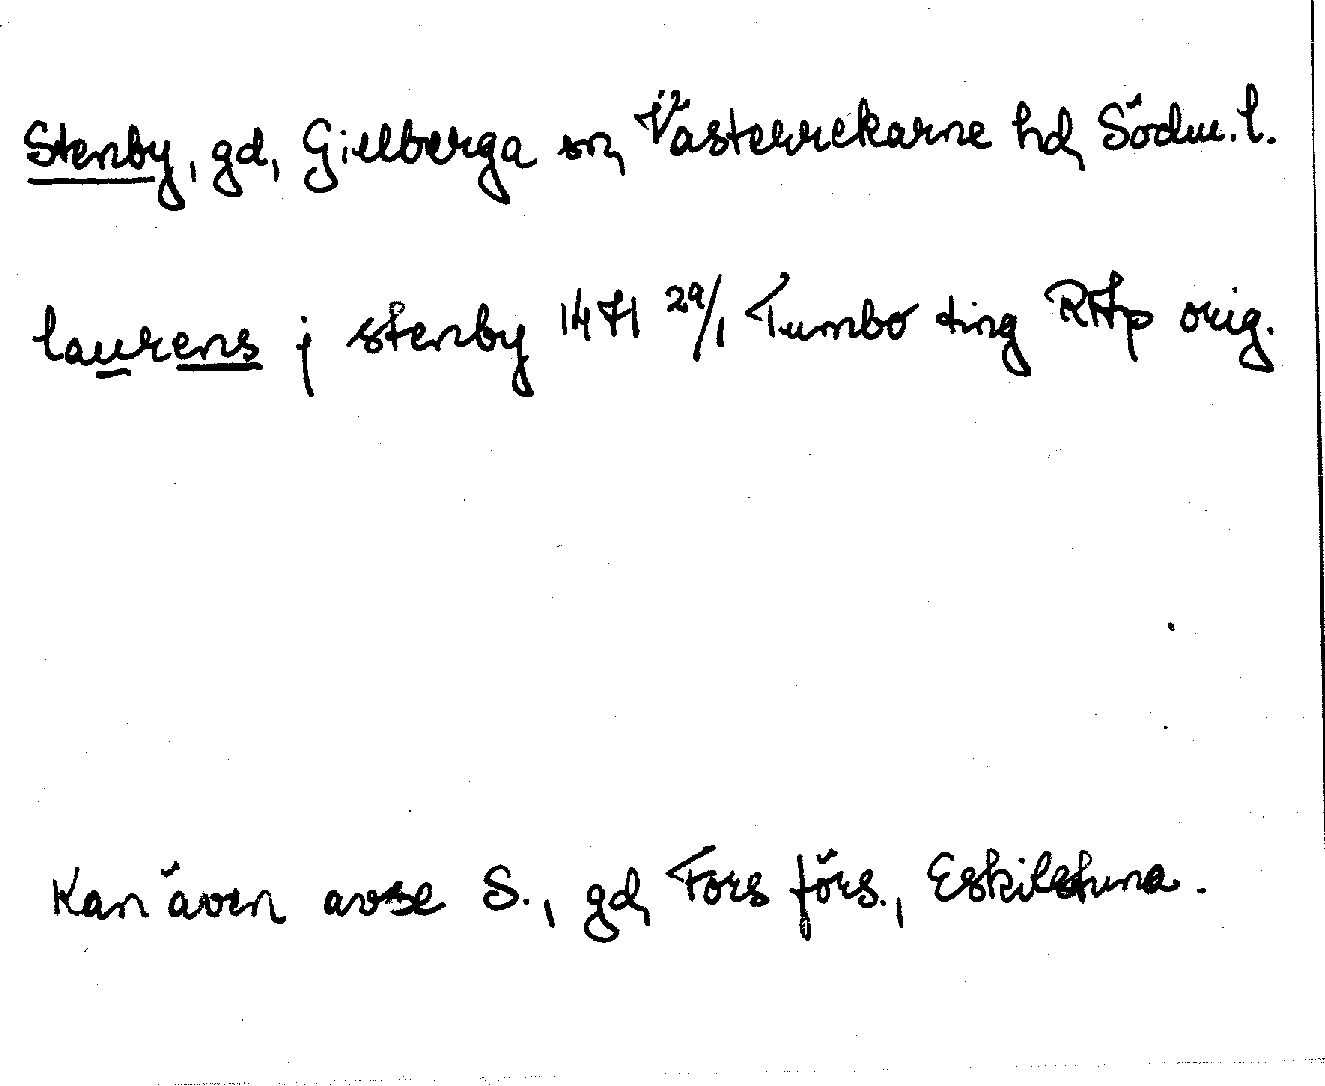 Stenby, gd, Gillberga sn, Västerrekarne hd, Södm. l.
laurens j stenby 1471 29/1 Tumbo ting RAp orig.
Kan även avse S., gd, Fors förs., Eskilstuna.